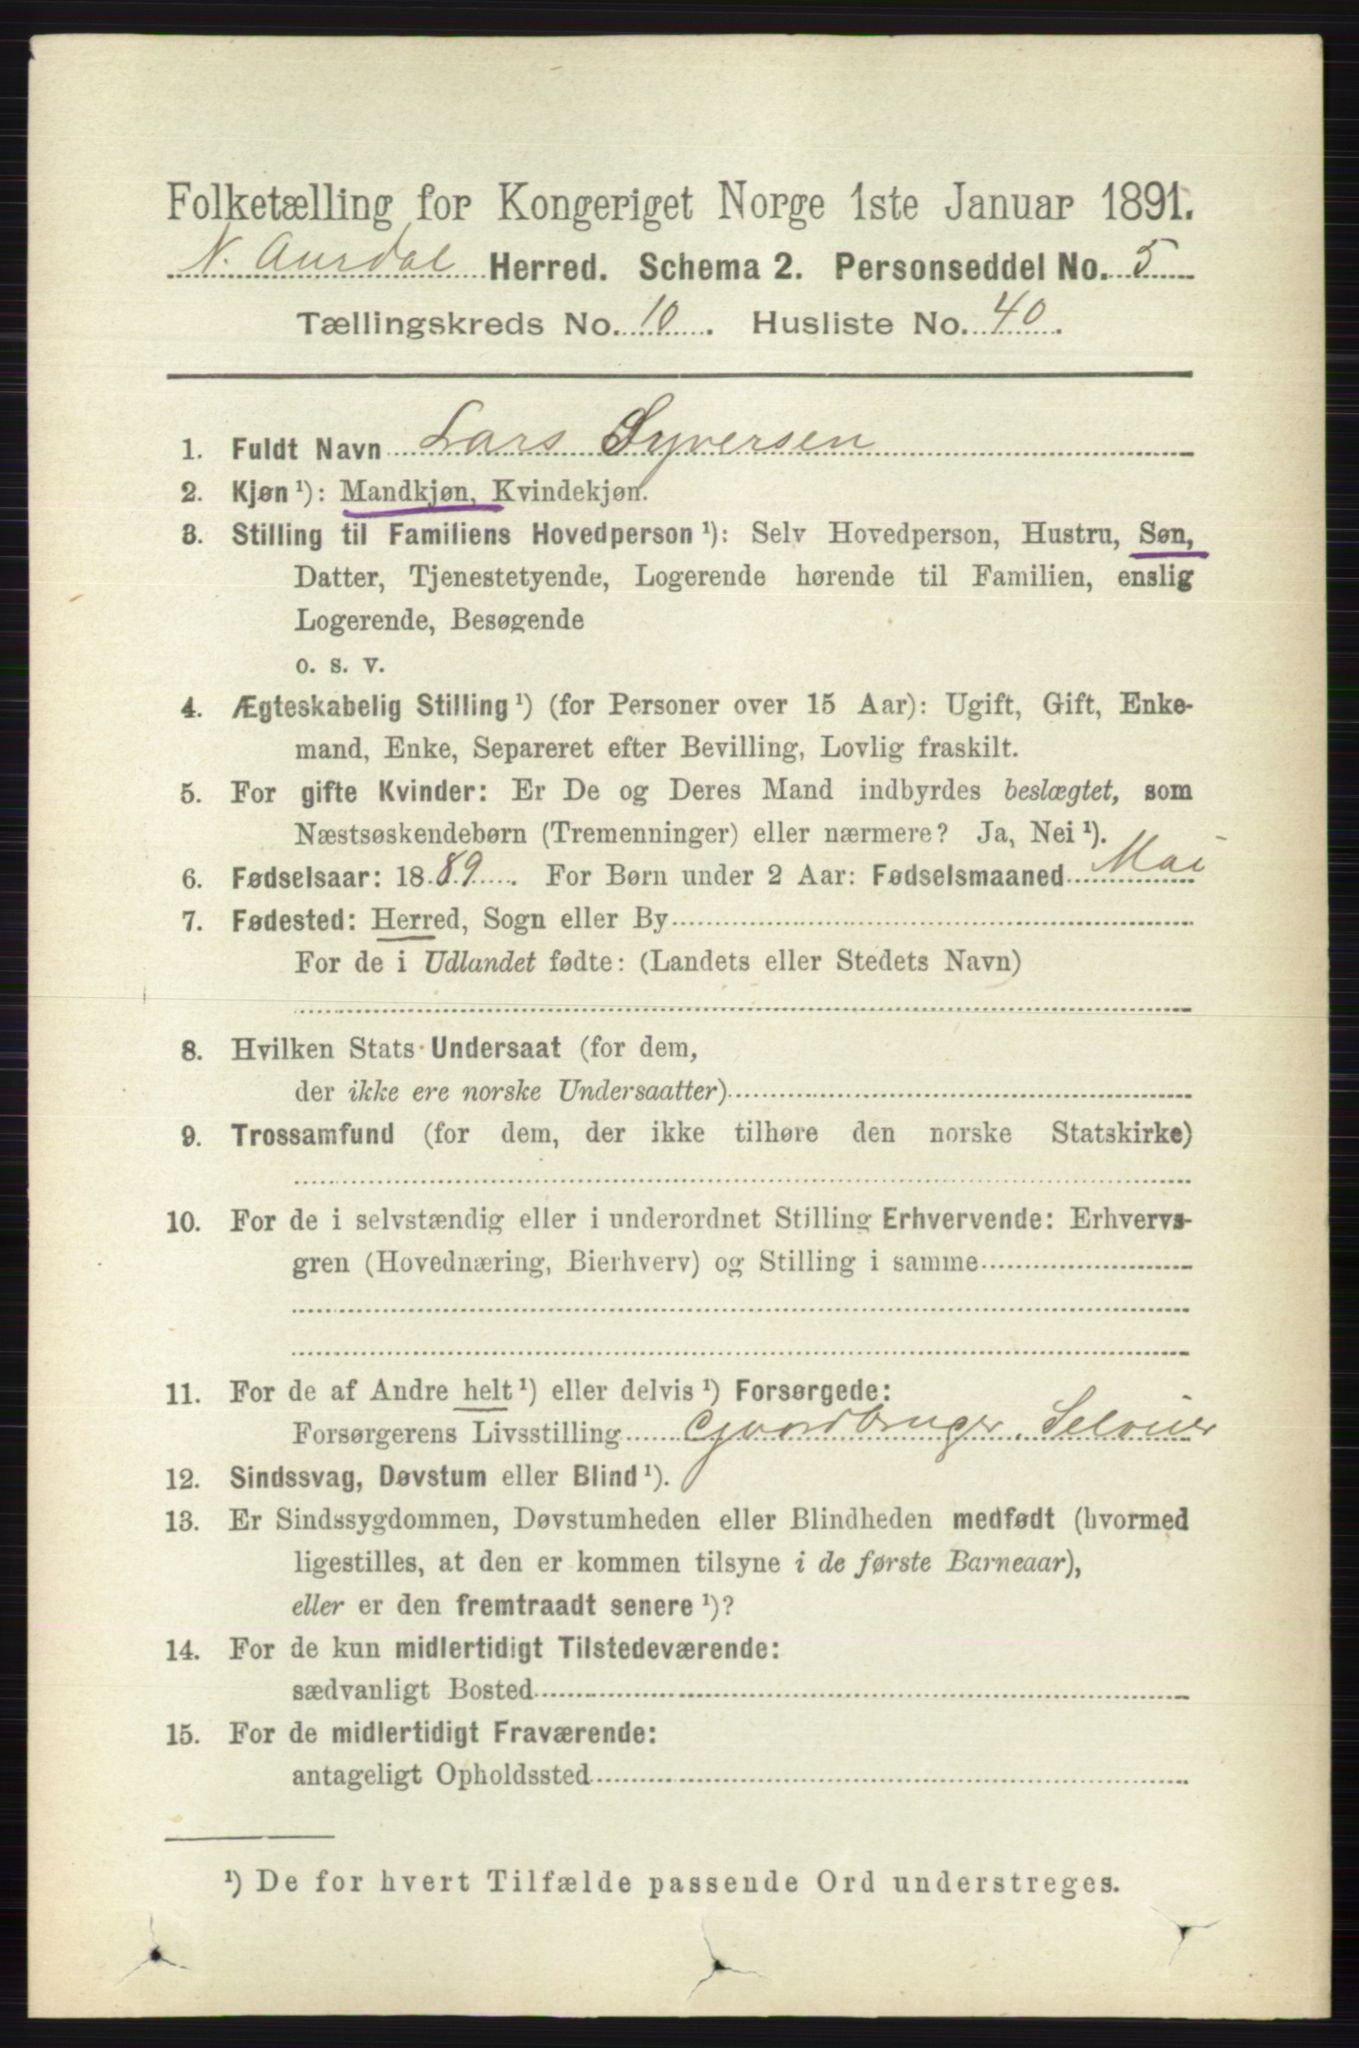 Folketælling for Kongeriget Norge 1ste Januar 1891.
N. Aurdal Herred. Schema 2. Personseddel No. 5
Tællingskreds No. 10. Husliste No. 40.
1. Fuldt Navn Lars Syversen
2. Kjøn ¹): Mandkjøn, Kvindekjøn.
3. Stilling til Familiens Hovedperson ¹): Selv Hovedperson, Hustru, Søn,
Datter, Tjenestetyende, Logerende hørende til Familien, enslig
Logerende, Besøgende
o. s. v.
4. Ægteskabelig Stilling ¹) (for Personer over 15 Aar): Ugift, Gift, Enke-
mand, Enke, Separeret efter Bevilling, Lovlig fraskilt.
5. For gifte Kvinder: Er De og Deres Mand indbyrdes beslægtet, som
Næstsøskendebørn (Tremenninger) eller nærmere? Ja, Nei ¹).
6. Fødselsaar: 1889. For Børn under 2 Aar: Fødselsmaaned Mai
7. Fødested: Herred, Sogn eller By
For de i Udlandet fødte: (Landets eller Stedets Navn)
8. Hvilken Stats Undersaat (for dem,
der ikke ere norske Undersaatter)
9. Trossamfund (for dem, der ikke tilhøre den norske Statskirke)
10. For de i selvstændig eller i underordnet Stilling Erhvervende: Erhvervs-
gren (Hovednæring, Bierhverv) og Stilling i samme
11. For de af Andre helt ¹) eller delvis ¹) Forsørgede:
Forsørgerens Livsstilling Gaardbruger, Selveier
12. Sindssvag, Døvstum eller Blind ¹).
13. Er Sindssygdommen, Døvstumheden eller Blindheden medfødt (hvormed
ligestilles, at den er kommen tilsyne i de første Barneaar),
eller er den fremtraadt senere ¹)?
14. For de kun midlertidigt Tilstedeværende:
sædvanligt Bosted
15. For de midlertidigt Fraværende:
antageligt Opholdssted
¹) De for hvert Tilfælde passende Ord understreges.